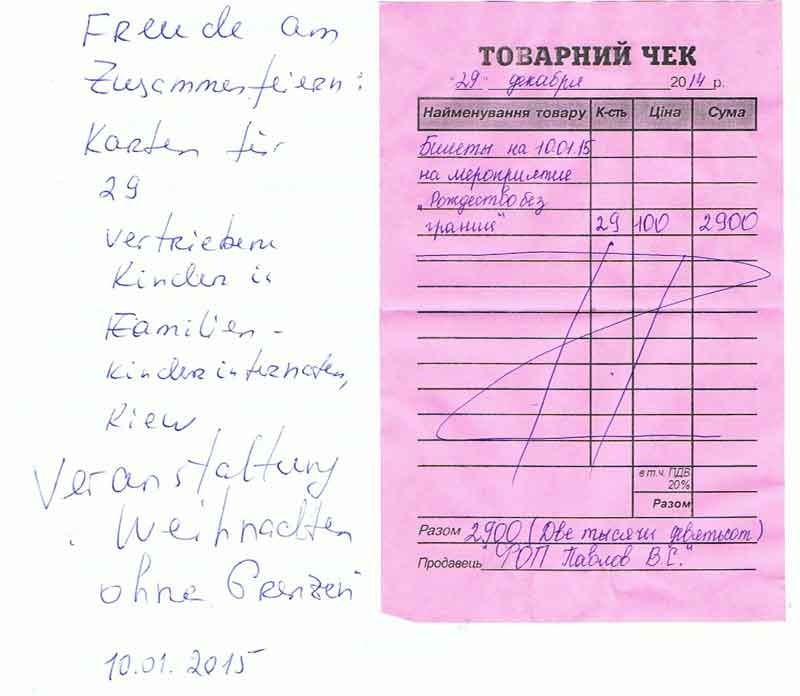 Freude am
Zusammenfeiern:
Karten für
29
vertriebene
Kinder in
Familien-
Kinderinternaten,
Kiew
Veranstaltung
Weihnachten
ohne Grenzen
10.01.2015
ТОВАРНИЙ ЧЕК
"29" декабря 2014 р.
Найменування товару К-сть Ціна Сума
Билеты на 10.01.15
на мероприятие
"Рождество без
границ" 29 100 2900
в т.ч. ПДВ
20%
Разом
Разом 2900 (Две тысячи девятьсот)
Продавець "ФОП Павлов В.С."